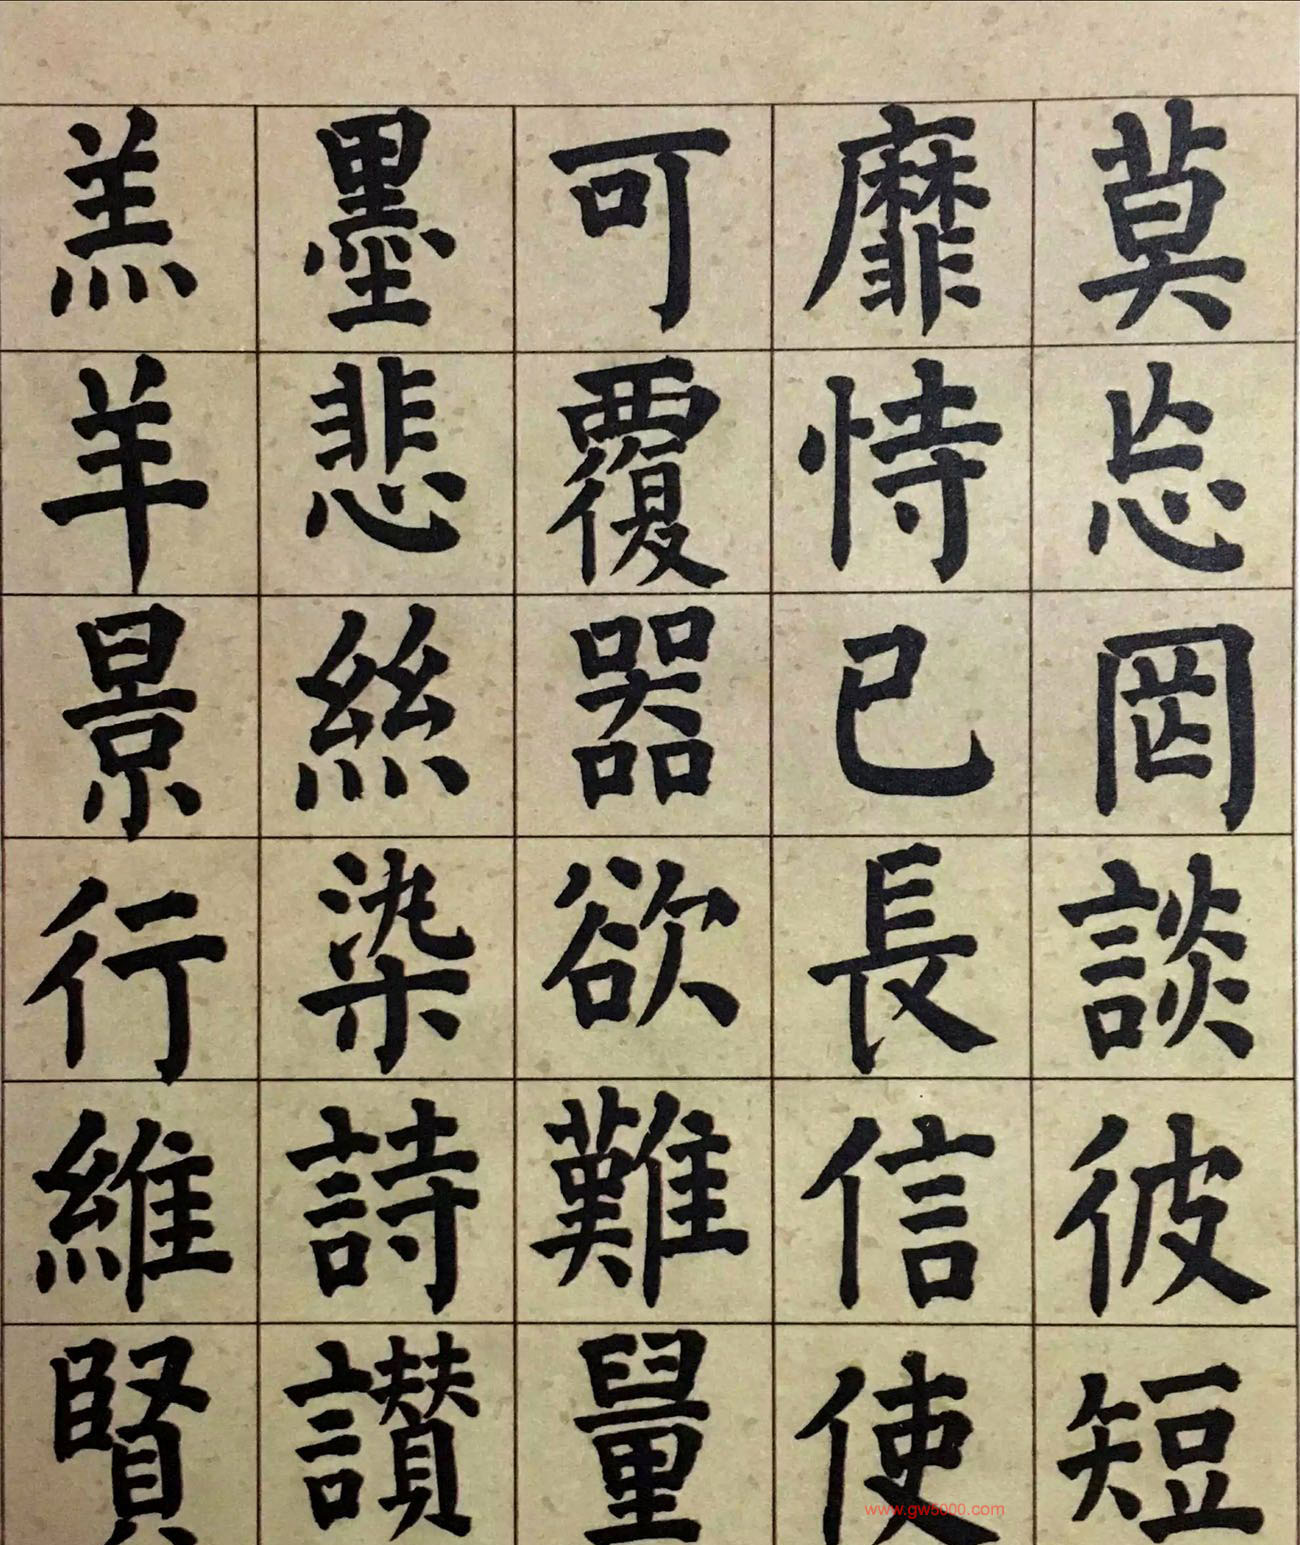 莫忘罔談彼短
靡恃己長信使
可覆器欲難量
墨悲絲染詩讃
羔羊景行維賢
www.gw5000.com